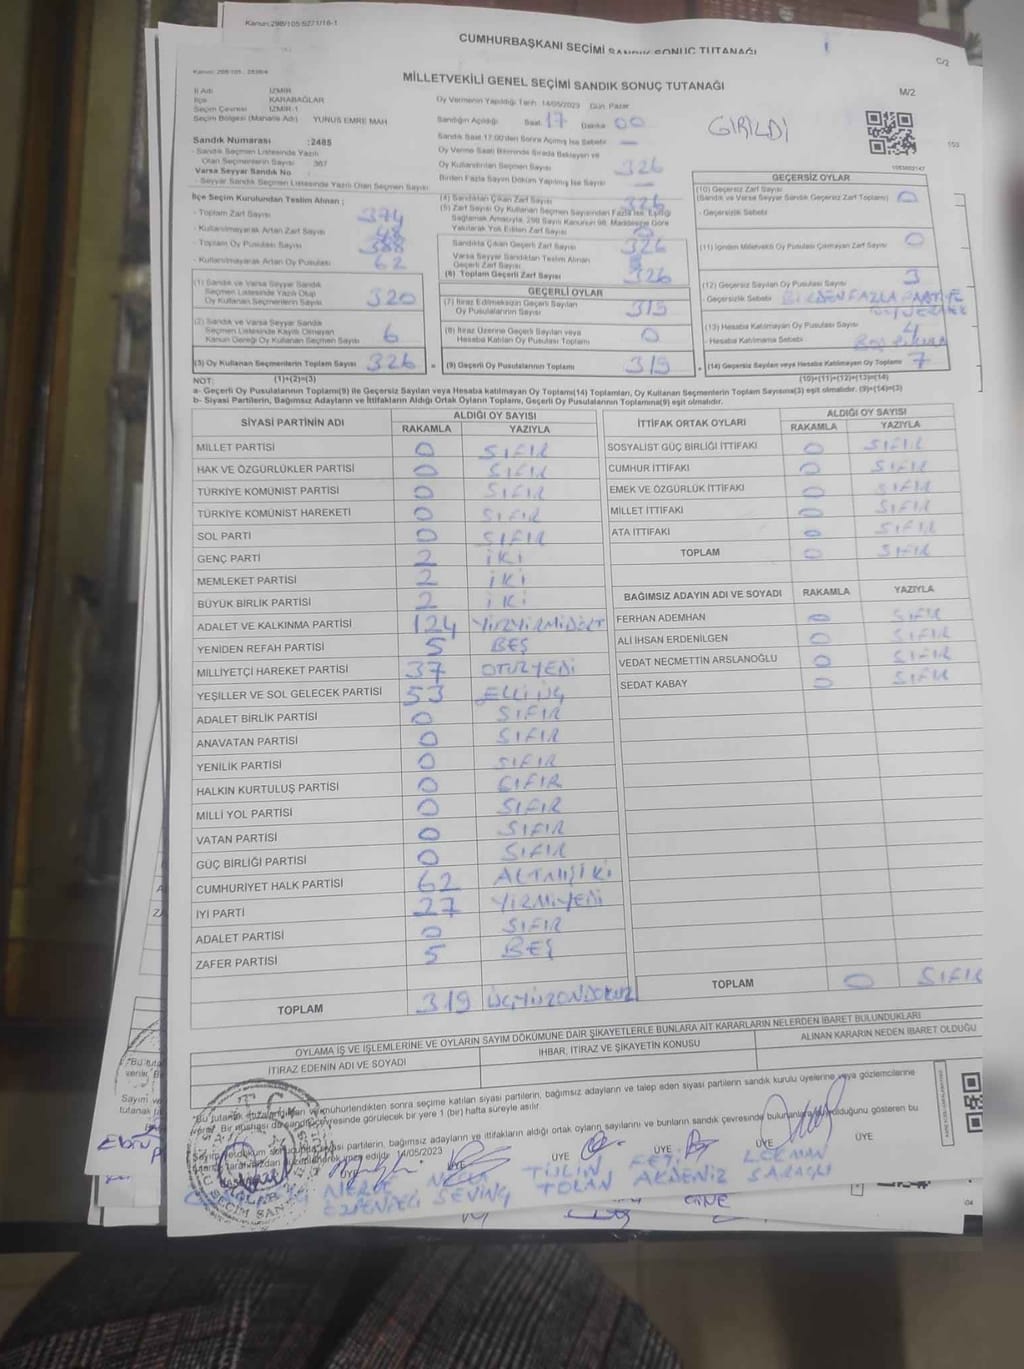 Kanun: 298/105 5271/16-1
CUMHURBAŞKANI SEÇİMİ SANDIK SONUÇ TUTANAĞI
C/2
MİLLETVEKİLİ GENEL SEÇİMİ SANDIK SONUÇ TUTANAĞI
M/2
İl Adı İZMİR
İlçe KARABAĞLAR
Seçim Çevresi İZMİR-1
Seçim Bölgesi (Mahalle Adı) YUNUS EMRE MAH
Oy Vermenin Yapıldığı Tarih 14/05/2023 Gün Pazar
Sandığın Açıldığı Saat 17 Dakika 00
GİRİLDİ
Sandık Numarası :2485
- Sandık Seçmen Listesinde Yazılı
Olan Seçmenlerin Sayısı 367
Varsa Seyyar Sandık No
- Seyyar Sandık Seçmen Listesinde Yazılı Olan Seçmen Sayısı
Sandık Saat 17:00'den Sonra Açılmış İse Sebebi
Oy Verme Saati Bitiminde Sırada Bekleyen ve
Oy Kullandırılan Seçmen Sayısı 326
Birden Fazla Sayım Döküm Yapılmış İse Sayısı
İlçe Seçim Kurulundan Teslim Alınan ;
- Toplam Zarf Sayısı 374
- Kullanılmayarak Artan Zarf Sayısı 48
- Toplam Oy Pusulası Sayısı
- Kullanılmayarak Artan Oy Pusulası 62
(1) Sandık ve Varsa Seyyar Sandık
Seçmen Listesinde Yazılı Olup
Oy Kullanan Seçmenlerin Sayısı 320
(2) Sandık ve Varsa Seyyar Sandık
Seçmen Listesinde Kayıtlı Olmayan
Kanun Gereği Oy Kullanan Seçmen Sayısı 6
(3) Oy Kullanan Seçmenlerin Toplam Sayısı 326
(4) Sandıktan Çıkan Zarf Sayısı 326
(5) Zarf Sayısı Oy Kullanan Seçmen Sayısından Fazla İse, Eşitliği
Sağlamak Amacıyla, 298 Sayılı Kanunun 98. Maddesine Göre
Yakılarak Yok Edilen Zarf Sayısı
Sandıkta Çıkan Geçerli Zarf Sayısı 326
Varsa Seyyar Sandıktan Teslim Alınan
Geçerli Zarf Sayısı
(6) Toplam Geçerli Zarf Sayısı 326
GEÇERLİ OYLAR
(7) İtiraz Edilmeksizin Geçerli Sayılan
Oy Pusulalarının Sayısı 319
(8) İtiraz Üzerine Geçerli Sayılan veya
Hesaba Katılan Oy Pusulası Toplamı 0
= (9) Geçerli Oy Pusulalarının Toplamı 319
GEÇERSİZ OYLAR
(10) Geçersiz Zarf Sayısı
(Sandık ve Varsa Seyyar Sandık Geçersiz Zarf Toplamı) 0
- Geçersizlik Sebebi
(11) İçinden Milletvekili Oy Pusulası Çıkmayan Zarf Sayısı 0
(12) Geçersiz Sayılan Oy Pusulası Sayısı 3
- Geçersizlik Sebebi BİRDEN FAZLA PARTİYE
OY VERMEK
(13) Hesaba Katılmayan Oy Pusulası Sayısı 4
- Hesaba Katılmama Sebebi
+ (14) Geçersiz Sayılan veya Hesaba Katılmayan Oy Toplamı 7
NOT: (1)+(2)=(3) (10)+(11)+(12)+(13)=(14)
a- Geçerli Oy Pusulalarının Toplamı(9) ile Geçersiz Sayılan veya Hesaba katılmayan Oy Toplamı(14) Toplamları, Oy Kullanan Seçmenlerin Toplam Sayısına(3) eşit olmalıdır. (9)+(14)=(3)
b- Siyasi Partilerin, Bağımsız Adayların ve İttifakların Aldığı Ortak Oyların Toplamı, Geçerli Oy Pusulalarının Toplamına(9) eşit olmalıdır.
SİYASİ PARTİNİN ADI ALDIĞI OY SAYISI
RAKAMLA YAZIYLA
MİLLET PARTİSİ 0 SIFIR
HAK VE ÖZGÜRLÜKLER PARTİSİ 0 SIFIR
TÜRKİYE KOMÜNİST PARTİSİ 0 SIFIR
TÜRKİYE KOMÜNİST HAREKETİ 0 SIFIR
SOL PARTİ 0 SIFIR
GENÇ PARTİ 2 İKİ
MEMLEKET PARTİSİ 2 İKİ
BÜYÜK BİRLİK PARTİSİ 2 İKİ
ADALET VE KALKINMA PARTİSİ 124 YÜZYİRMİDÖRT
YENİDEN REFAH PARTİSİ 5 BEŞ
MİLLİYETÇİ HAREKET PARTİSİ 37 OTUZYEDİ
YEŞİLLER VE SOL GELECEK PARTİSİ 53 ELLİ ÜÇ
ADALET BİRLİK PARTİSİ 0 SIFIR
ANAVATAN PARTİSİ 0 SIFIR
YENİLİK PARTİSİ 0 SIFIR
HALKIN KURTULUŞ PARTİSİ 0 SIFIR
MİLLİ YOL PARTİSİ 0 SIFIR
VATAN PARTİSİ 0 SIFIR
GÜÇ BİRLİĞİ PARTİSİ 0 SIFIR
CUMHURİYET HALK PARTİSİ 62 ALTMIŞİKİ
İYİ PARTİ 27 YİRMİYEDİ
ADALET PARTİSİ 0 SIFIR
ZAFER PARTİSİ 5 BEŞ
TOPLAM 319 ÜÇYÜZONDOKUZ
İTTİFAK ORTAK OYLARI ALDIĞI OY SAYISI
RAKAMLA YAZIYLA
SOSYALİST GÜÇ BİRLİĞİ İTTİFAKI 0 SIFIR
CUMHUR İTTİFAKI 0 SIFIR
EMEK VE ÖZGÜRLÜK İTTİFAKI 0 SIFIR
MİLLET İTTİFAKI 0 SIFIR
ATA İTTİFAKI 0 SIFIR
TOPLAM 0 SIFIR
BAĞIMSIZ ADAYIN ADI VE SOYADI RAKAMLA YAZIYLA
FERHAN ADEMHAN 0 SIFIR
ALİ İHSAN ERDENİLGEN 0 SIFIR
VEDAT NECMETTİN ARSLANOĞLU 0 SIFIR
SEDAT KABAY 0 SIFIR
TOPLAM 0 SIFIR
OYLAMA İŞ VE İŞLEMLERİNE VE OYLARIN SAYIM DÖKÜMÜNE DAİR ŞİKAYETLERLE BUNLARA AİT KARARLARIN NELERDEN İBARET BULUNDUKLARI
İTİRAZ EDENİN ADI VE SOYADI İHBAR, İTİRAZ VE ŞİKAYETİN KONUSU ALINAN KARARIN NEDEN İBARET OLDUĞU
"Bu tutanak imzalandıktan ve mühürlendikten sonra seçime katılan siyasi partilerin, bağımsız adayların ve talep eden siyasi partilerin sandık kurulu üyelerine veya gözlemcilerine
verilir. Bir nüshası da sandık çevresinde görülecek bir yere 1 (bir) hafta süreyle asılır.
siyasi partilerin, bağımsız adayların ve ittifakların aldığı ortak oyların sayılarını ve bunların sandık çevresinde bulunanlara duyurulduğunu gösteren bu
14/05/2023
ÜYE ÜYE ÜYE ÜYE ÜYE ÜYE
SEVİNÇ
TÜLİN
TOLAN
AKDENİZ
SARAÇLI